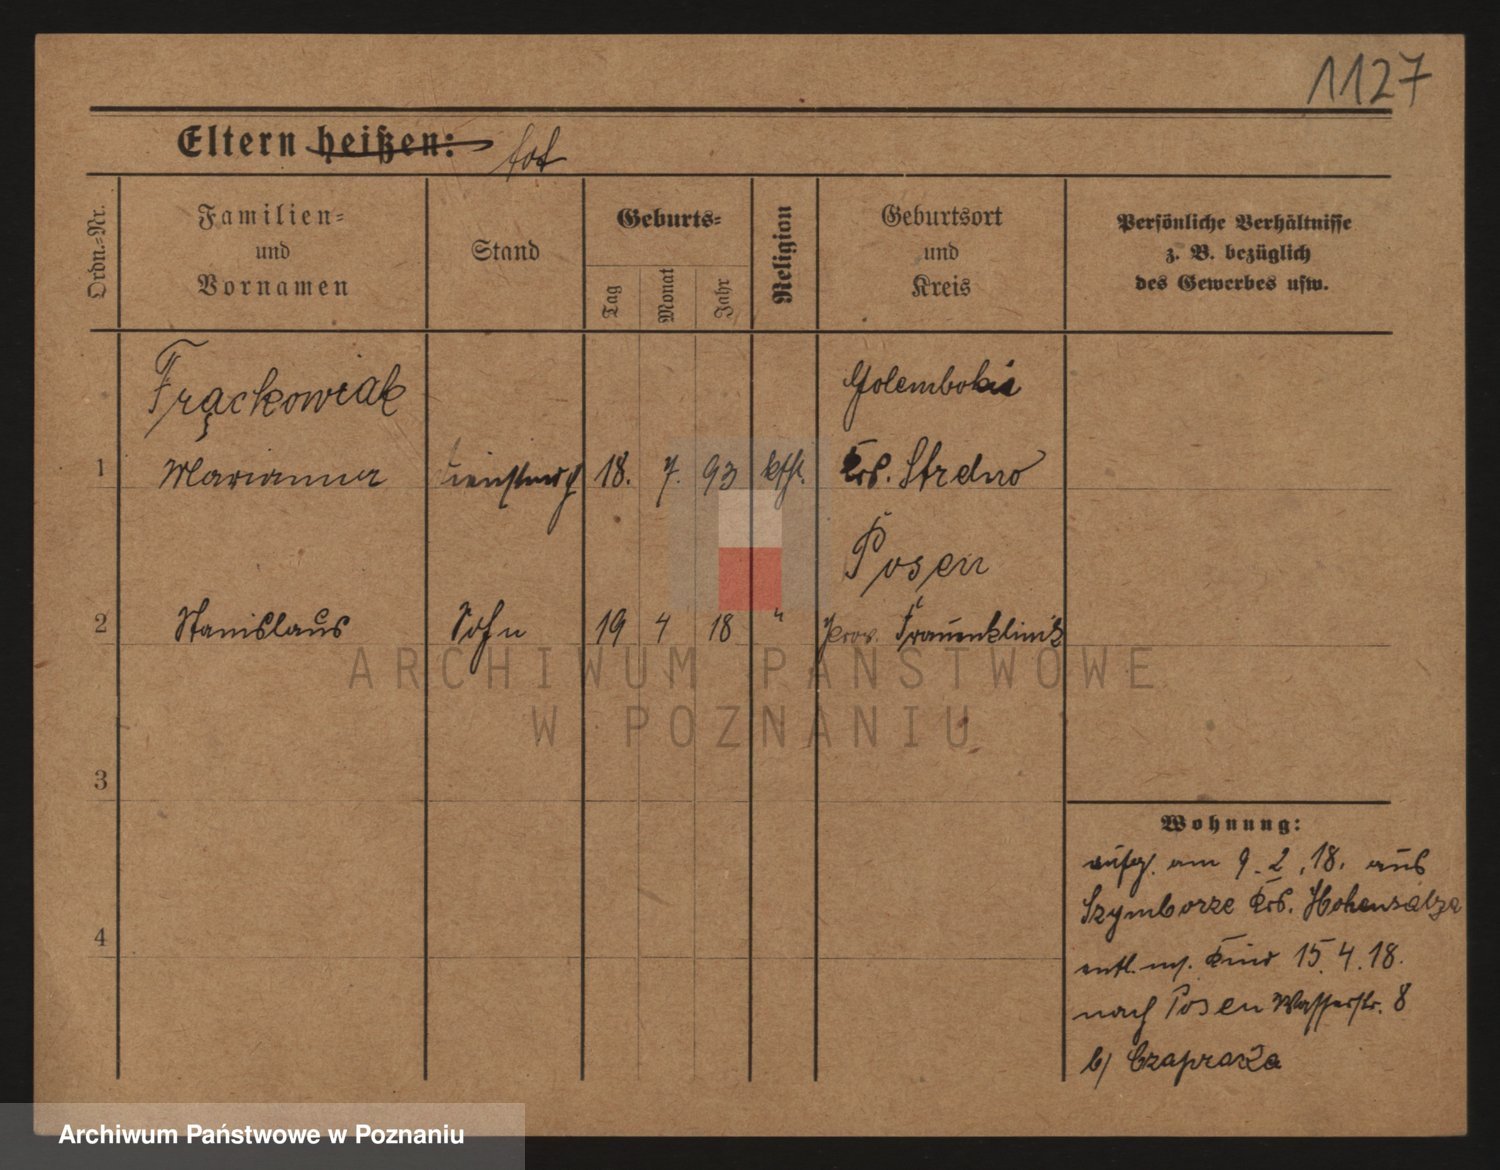 1127
Eltern heißen: tot
Ordn.=Nr.
Familien=
und
Vornamen
Stand
Geburts=
Tag
Monat
Jahr
Religion
Geburtsort
und
Kreis
Persönliche Verhältnisse
z. B. bezüglich
des Gewerbes usw.
Frąckowiak
Golembokie
1 Marianna 18. 7. 93 kth. Krs. Strelno
Posen
2 Stanislaus Sohn 19 4 18 " prov. Frauenklinik
3
4
Wohnung:
aufg. am 9. 2. 18. aus
Szymborze Krs. Hohensalza
entl. m. Kind 15. 4. 18.
nach Posen Wasserstr. 8
b/
ARCHIWUM PAŃSTWOWE
W POZNANIU
Archiwum Państwowe w Poznaniu